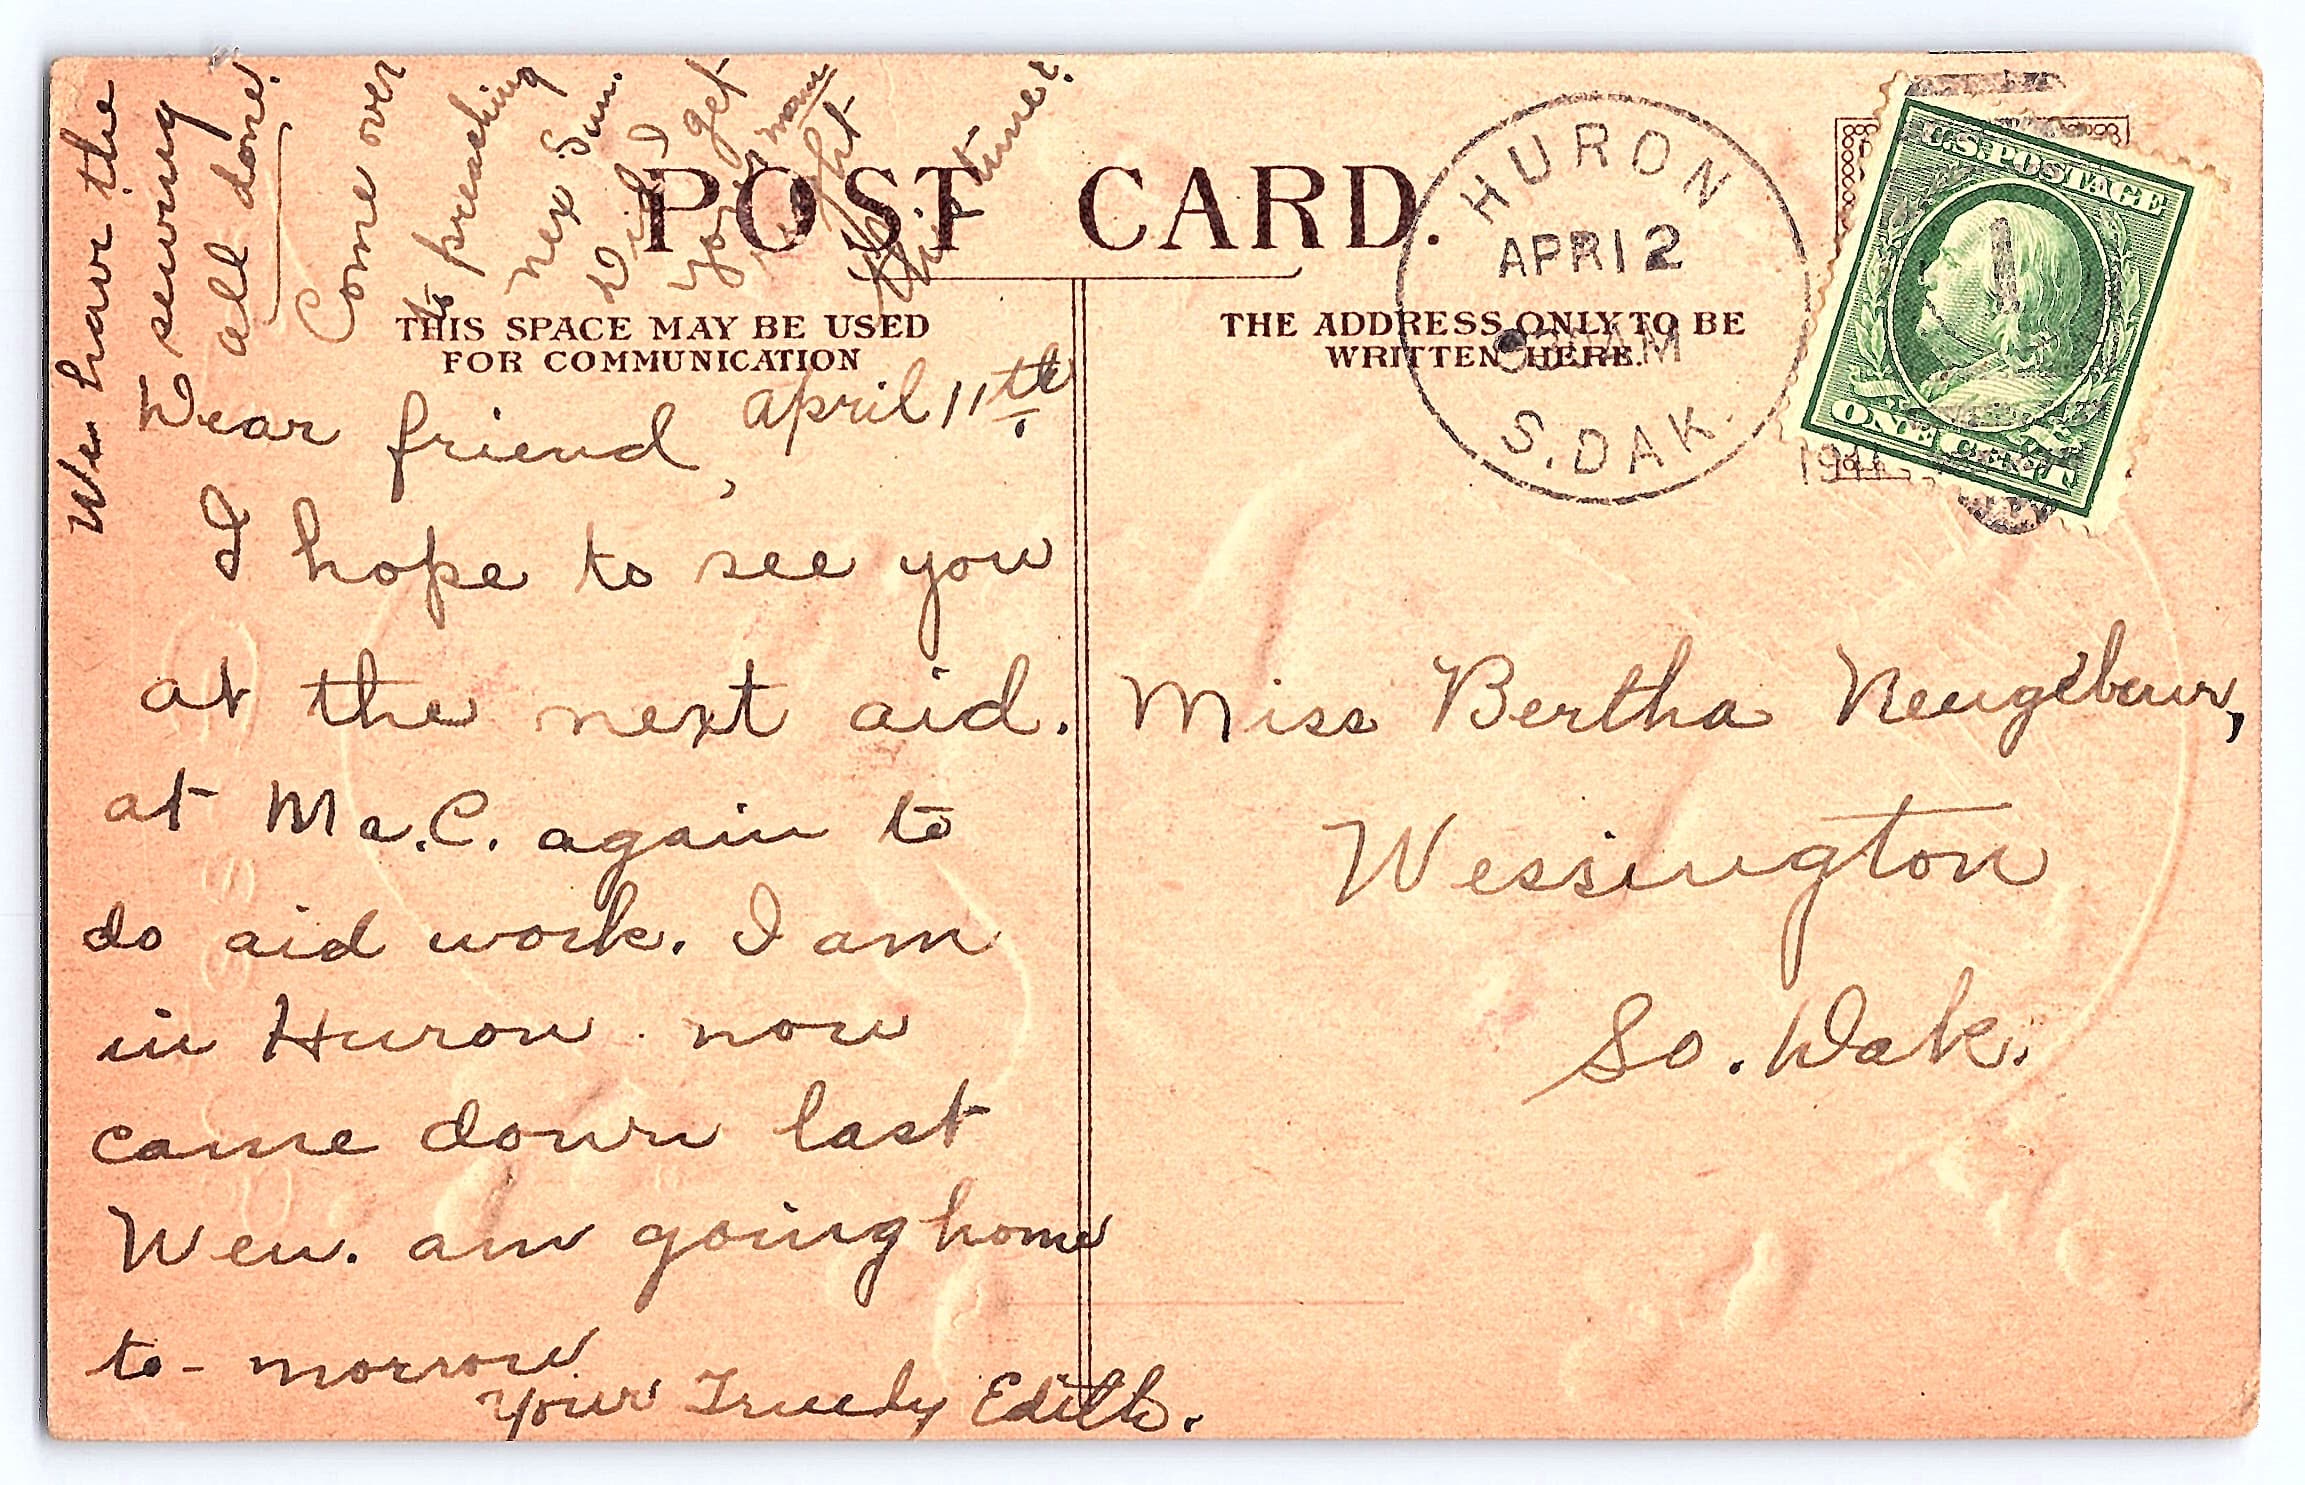 We have the
sewing
all done.
Come over
to preaching
nex Sun.
Did I get
your name
right
this time?
POST CARD.
THIS SPACE MAY BE USED
FOR COMMUNICATION
THE ADDRESS ONLY TO BE
WRITTEN HERE.
HURON
APR 12
AM
S. DAK.
191
U.S. POSTAGE
1
ONE CENT
April 11th
Dear friend,
I hope to see you
at the next aid.
at Mc.C. again to
do aid work. I am
in Huron now
came down last
Wen. am going home
to-morrow
Your Truely Edith.
Miss Bertha Neugebaur,
Wessington
So. Dak.